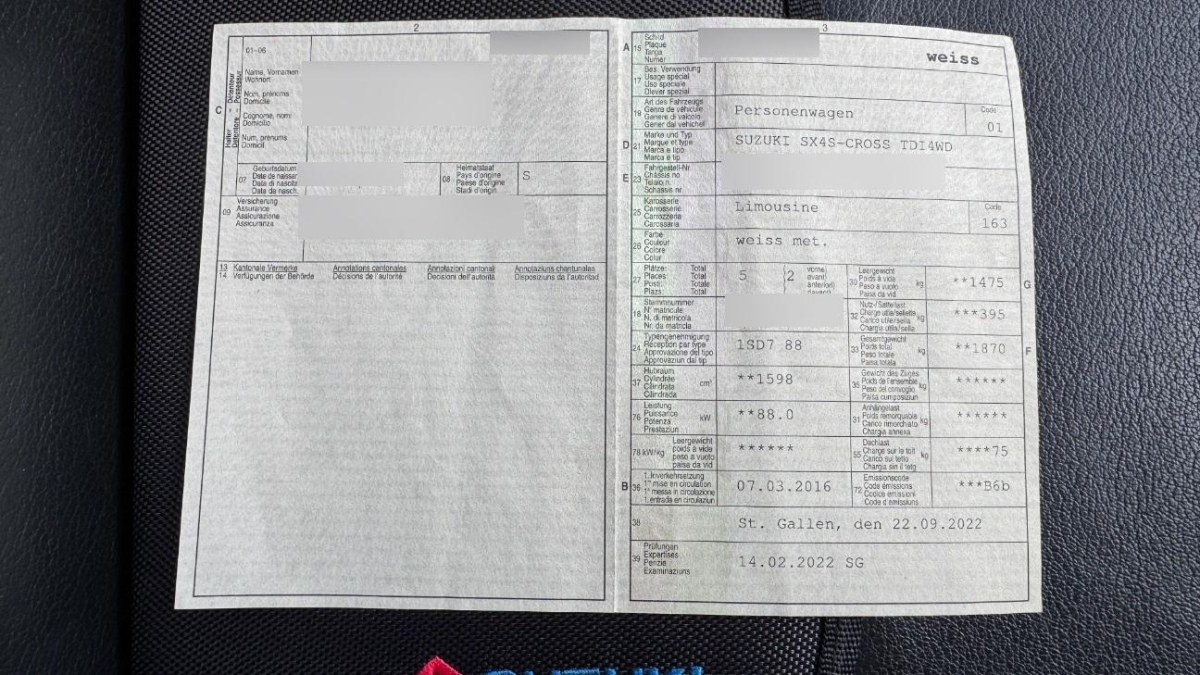 2
01-06
C
Halter Détenteur
Detentore Possessur
Name, Vornamen
Wohnort
Nom, prénoms
Domicile
Cognome, nomi
Domicilio
Num, prenums
Domicil
07
Geburtsdatum
Date de naissance
Data di nascita
Data da nasch.
08
Heimatstaat
Pays d'origine
Paese d'origine
Stadi d'origin
S
09
Versicherung
Assurance
Assicurazione
Assicuranza
13 Kantonale Vermerke Annotations cantonales Annotazioni cantonali Annotaziuns chantunalas
14 Verfügungen der Behörde Décisions de l'autorité Decisioni dell'autorità Disposiziuns da l'autoritad
3
A 15
Schild
Plaque
Targa
Numer
weiss
17
Bes. Verwendung
Usage spécial
Uso speciale
Diever spezial
19
Art des Fahrzeugs
Genre de véhicule
Genere di veicolo
Gener dal vehichel
Personenwagen
Code
01
D 21
Marke und Typ
Marque et type
Marca e tipo
Marca e tip
SUZUKI SX4S-CROSS TDI4WD
E 23
Fahrgestell-Nr.
Châssis no
Telaio n.
Schassis nr.
25
Karosserie
Carrosserie
Carrozzeria
Carossaria
Limousine
Code
163
26
Farbe
Couleur
Colore
Colur
weiss met.
27
Plätze: Total
Places: Total
Posti: Totale
Plazs: Total
5 2
vorne
avant
anteriori
davant
30
Leergewicht
Poids à vide
Peso a vuoto
Paisa da vid
kg
**1475
G
18
Stammnummer
N° matricule
N. di matricola
Nr. du matricla
32
Nutz-/Sattellast
Charge utile/sellette
Carico utile/sella
Chargia utila/sella
kg
***395
24
Typengenehmigung
Réception par type
Approvazione del tipo
Approvaziun dal tip
1SD7 88
33
Gesamtgewicht
Poids total
Peso totale
Paisa totala
kg
**1870
F
37
Hubraum
Cylindrée
Cilindrata
Cilindrada
cm³
**1598
35
Gewicht des Zuges
Poids de l'ensemble
Peso del convoglio
Paisa cumposiziun
kg
******
76
Leistung
Puissance
Potenza
Prestaziun
kW
**88.0
31
Anhängelast
Poids remorquable
Carico rimorchiato
Chargia annexa
kg
******
78 kW/kg
Leergewicht
poids à vide
peso a vuoto
paisa da vid
******
55
Dachlast
Charge sur le toit
Carico sul tetto
Chargia sin il tetg
kg
****75
B 36
1. Inverkehrsetzung
1re mise en circulation
1a messa in circolazione
1. entrada en circulaziun
07.03.2016
72
Emissionscode
Code émissions
Codice emissioni
Code d'emissiuns
***B6b
38
St. Gallen, den 22.09.2022
39
Prüfungen
Expertises
Perizie
Examinaziuns
14.02.2022 SG